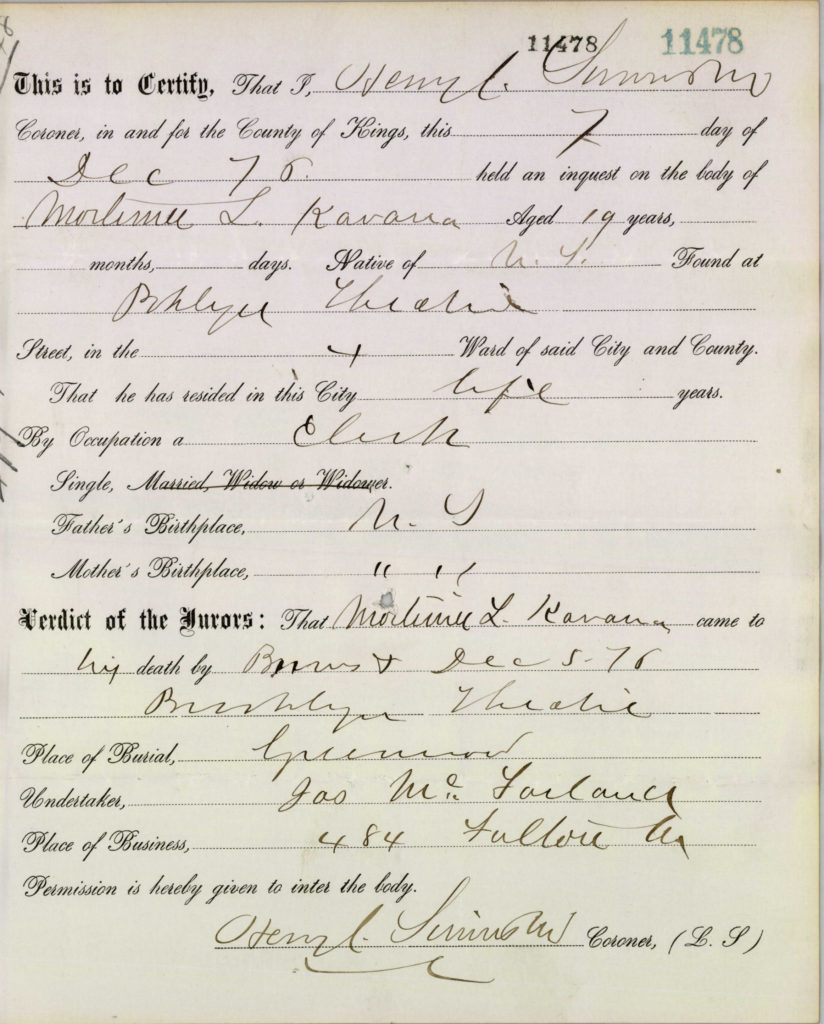 11478 11478
This is to Certify, That I, Henry C. Simms M
Coroner, in and for the County of Kings, this 7 day of
Dec 76. held an inquest on the body of
Mortimer L. Kavana Aged 19 years,
months, days. Native of N. Y. Found at
Bklyn Theatre
Street, in the 4 Ward of said City and County.
That he has resided in this City life years.
By Occupation a Clerk
Single, Married, Widow or Widower.
Father's Birthplace, N. Y
Mother's Birthplace, " "
Verdict of the Jurors: That Mortimer L. Kavana came to
his death by Burns Dec 5-76
Brooklyn Theatre
Place of Burial, Greenwood
Undertaker, Jas Mc Farland
Place of Business, 484 Fulton
Permission is hereby given to inter the body.
Henry C. Simms M Coroner, (L. S)